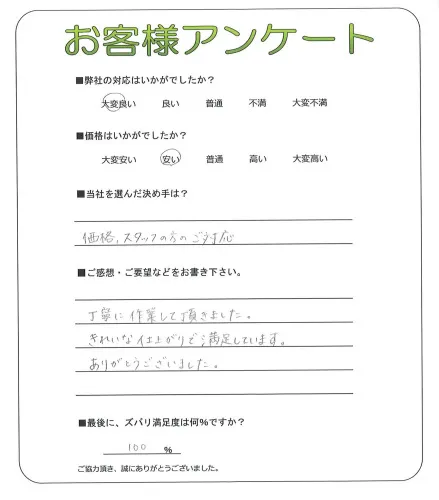 お客様アンケート
■弊社の対応はいかがでしたか？
大変良い 良い 普通 不満 大変不満
■価格はいかがでしたか？
大変安い 安い 普通 高い 大変高い
■当社を選んだ決め手は？
価格、スタッフの方のご対応
■ご感想・ご要望などをお書き下さい。
丁寧に作業して頂きました。
きれいな仕上がりで満足しています。
ありがとうございました。
■最後に、ズバリ満足度は何%ですか？
100 %
ご協力頂き、誠にありがとうございました。